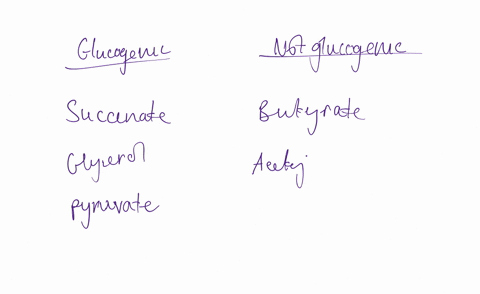 Glucogenic
Not glucogenic
Succinate
Butyrate
Glycerol
Acety
pyruvate